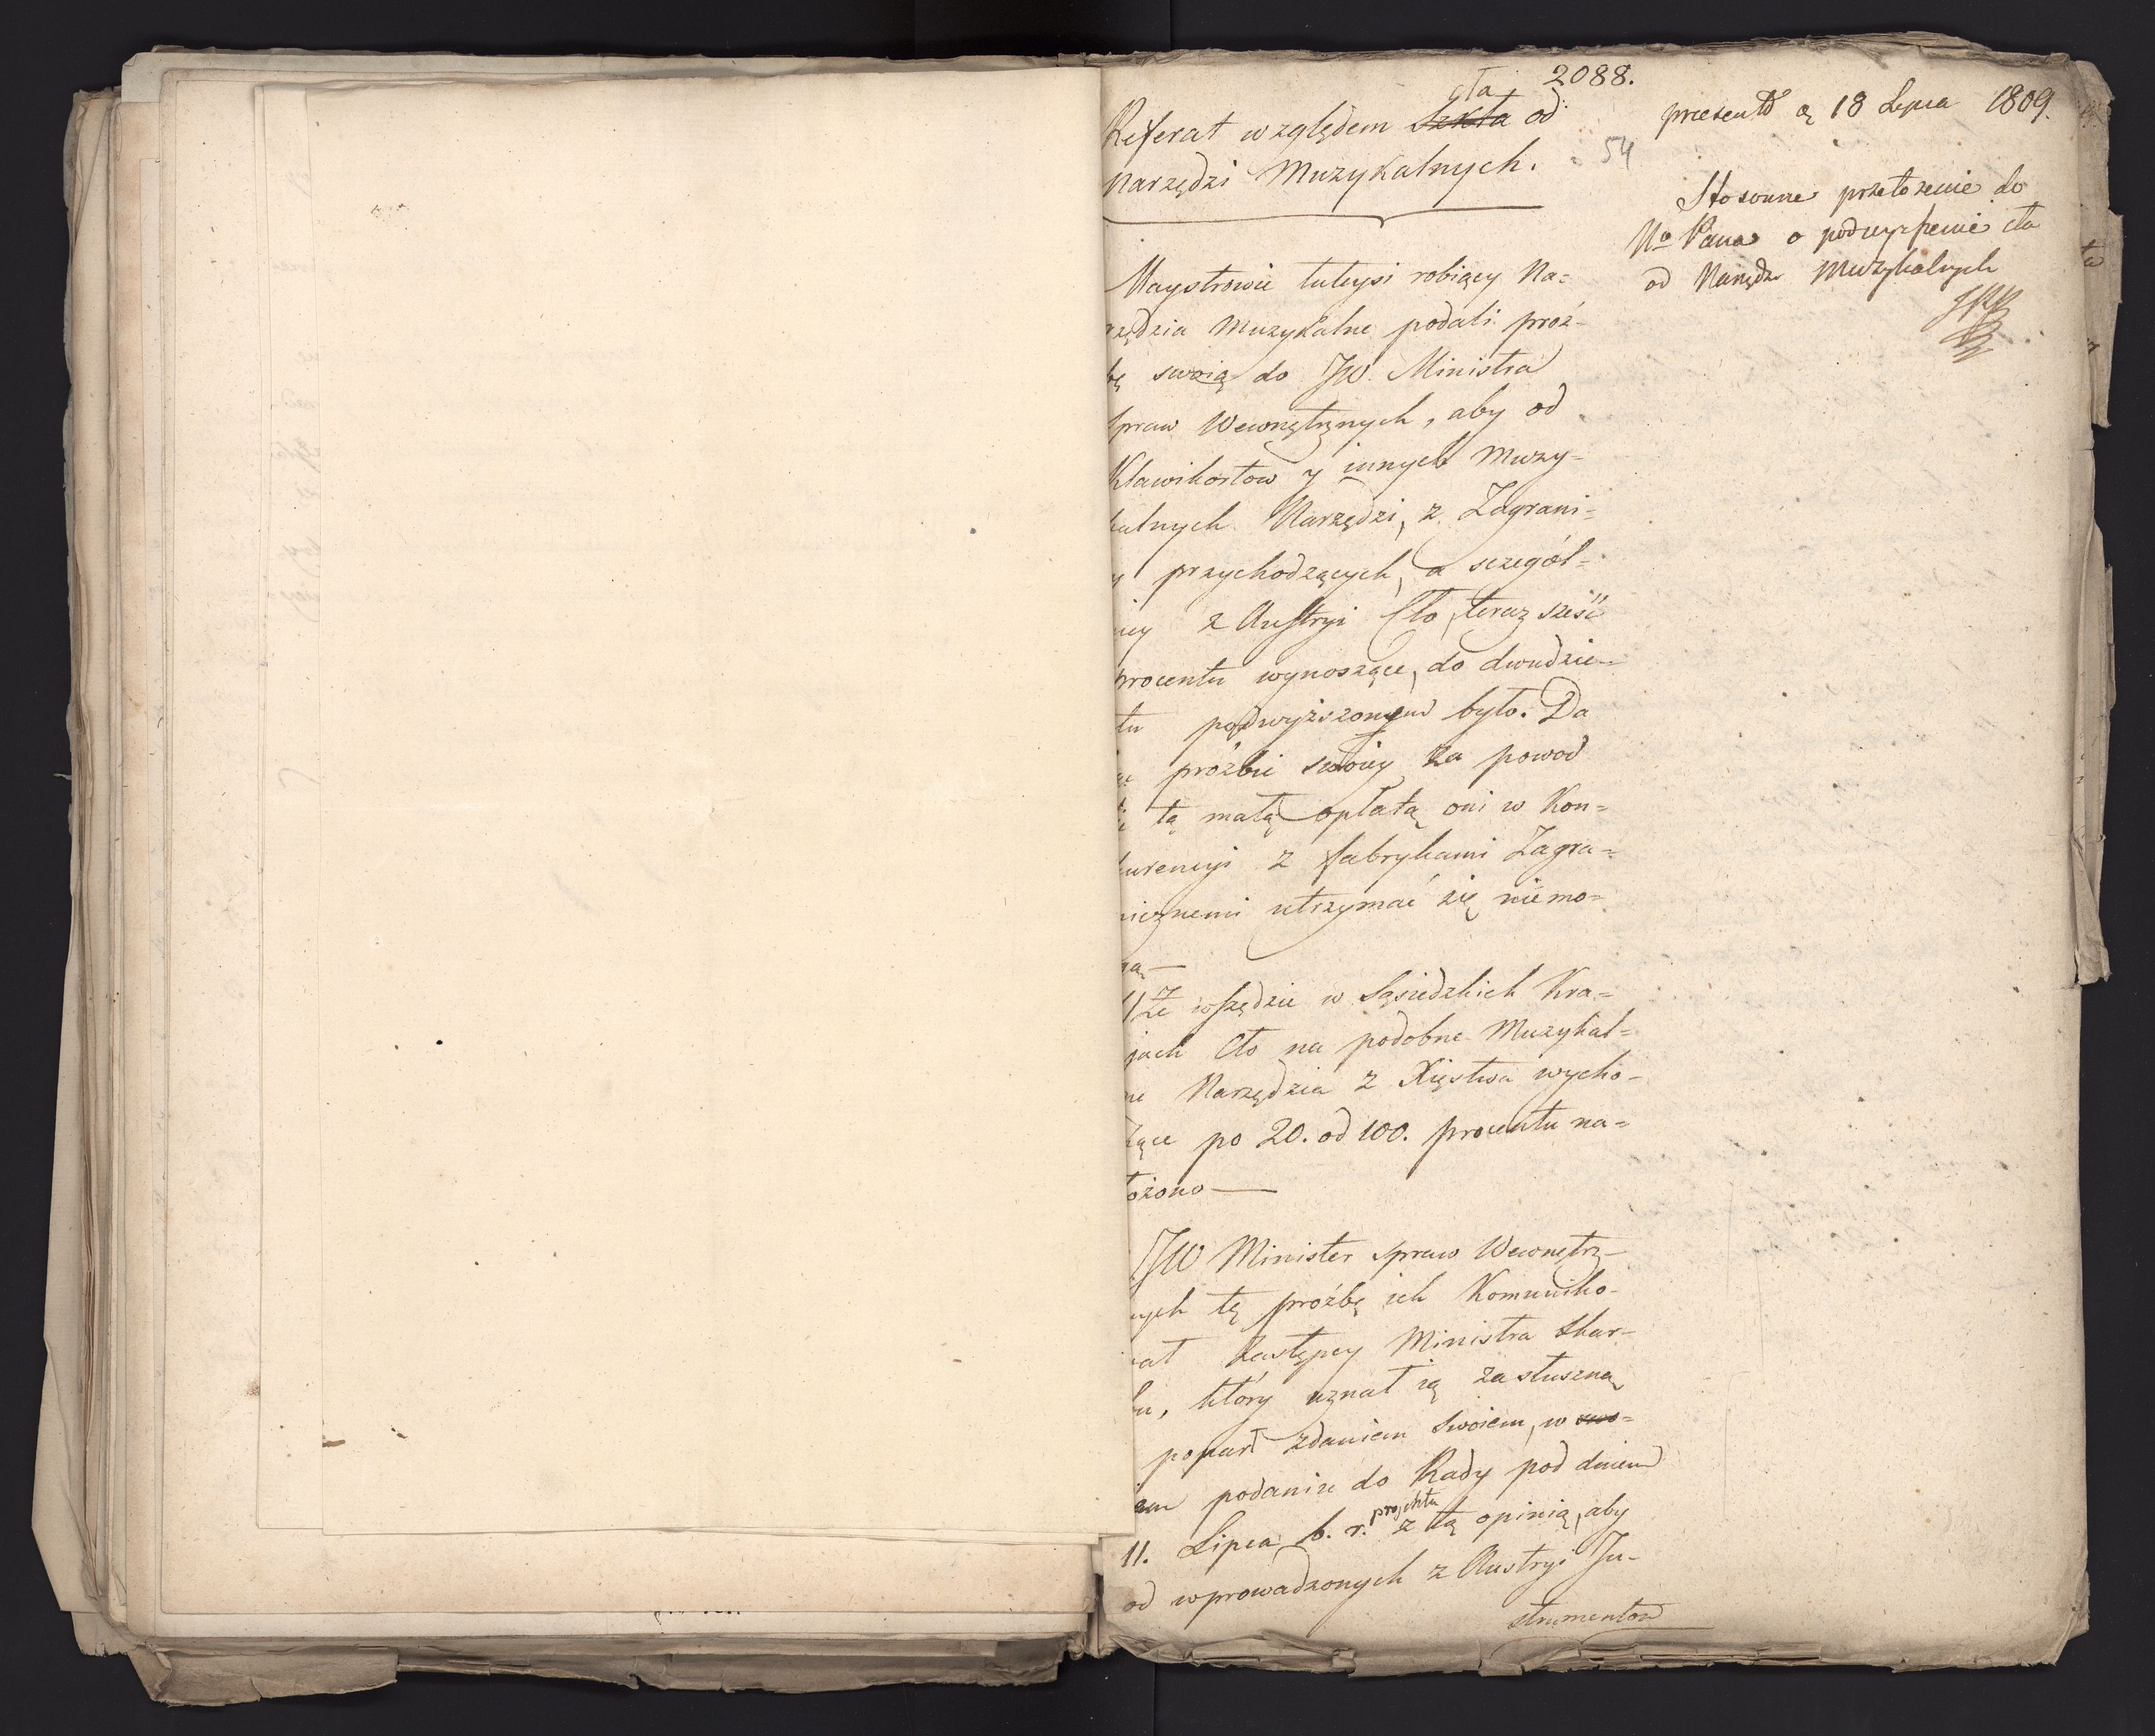 2088.
cła
Referat względem Szkła od
Narzędzi Muzykalnych.
54
presentt d. 18 Lipca 1809.
Stosowne przełożenie do
No Pana o podwyższenie cła
od Narzędzi Muzykalnych
Maystrowie tuteysi robiący Na=
rzędzia Muzykalne podali proź-
bę swoią do JW. Ministra
Spraw Wewnętrznych, aby od
Klawikortow y innych Muzy-
kalnych Narzędzi, z Zagrani=
y przychodzących, a sczegól=
niey z Austryi Cło, teraz sześć
procentu wynoszące, do dwudzie-
tu podwyższonym było. Da
ąc proźbie swoiey za powod
tą małą opłatą oni w Kon=
kurencyi z fabrykami Zagra=
nicznemi utrzymać się niemo=
gą —
Że wszędzie w Sąsiedzkich Kra=
jach Cło na podobne Muzykal=
ne Narzędzia z Xięstwa wycho-
dzące po 20. od 100. procentu na=
łożono —
JW Minister Spraw Wewnętrz-
nych tę proźbę ich Komuniko-
wał Zastępcy Ministra Skar-
bu, który uznał ią za słuszną
poparł zdaniem swoiem, w swo=
iem podaniu do Rady pod dniem
projektu
11. Lipca b. r. z tą opinią, aby
od wprowadzonych z Austryi In-
strumentow